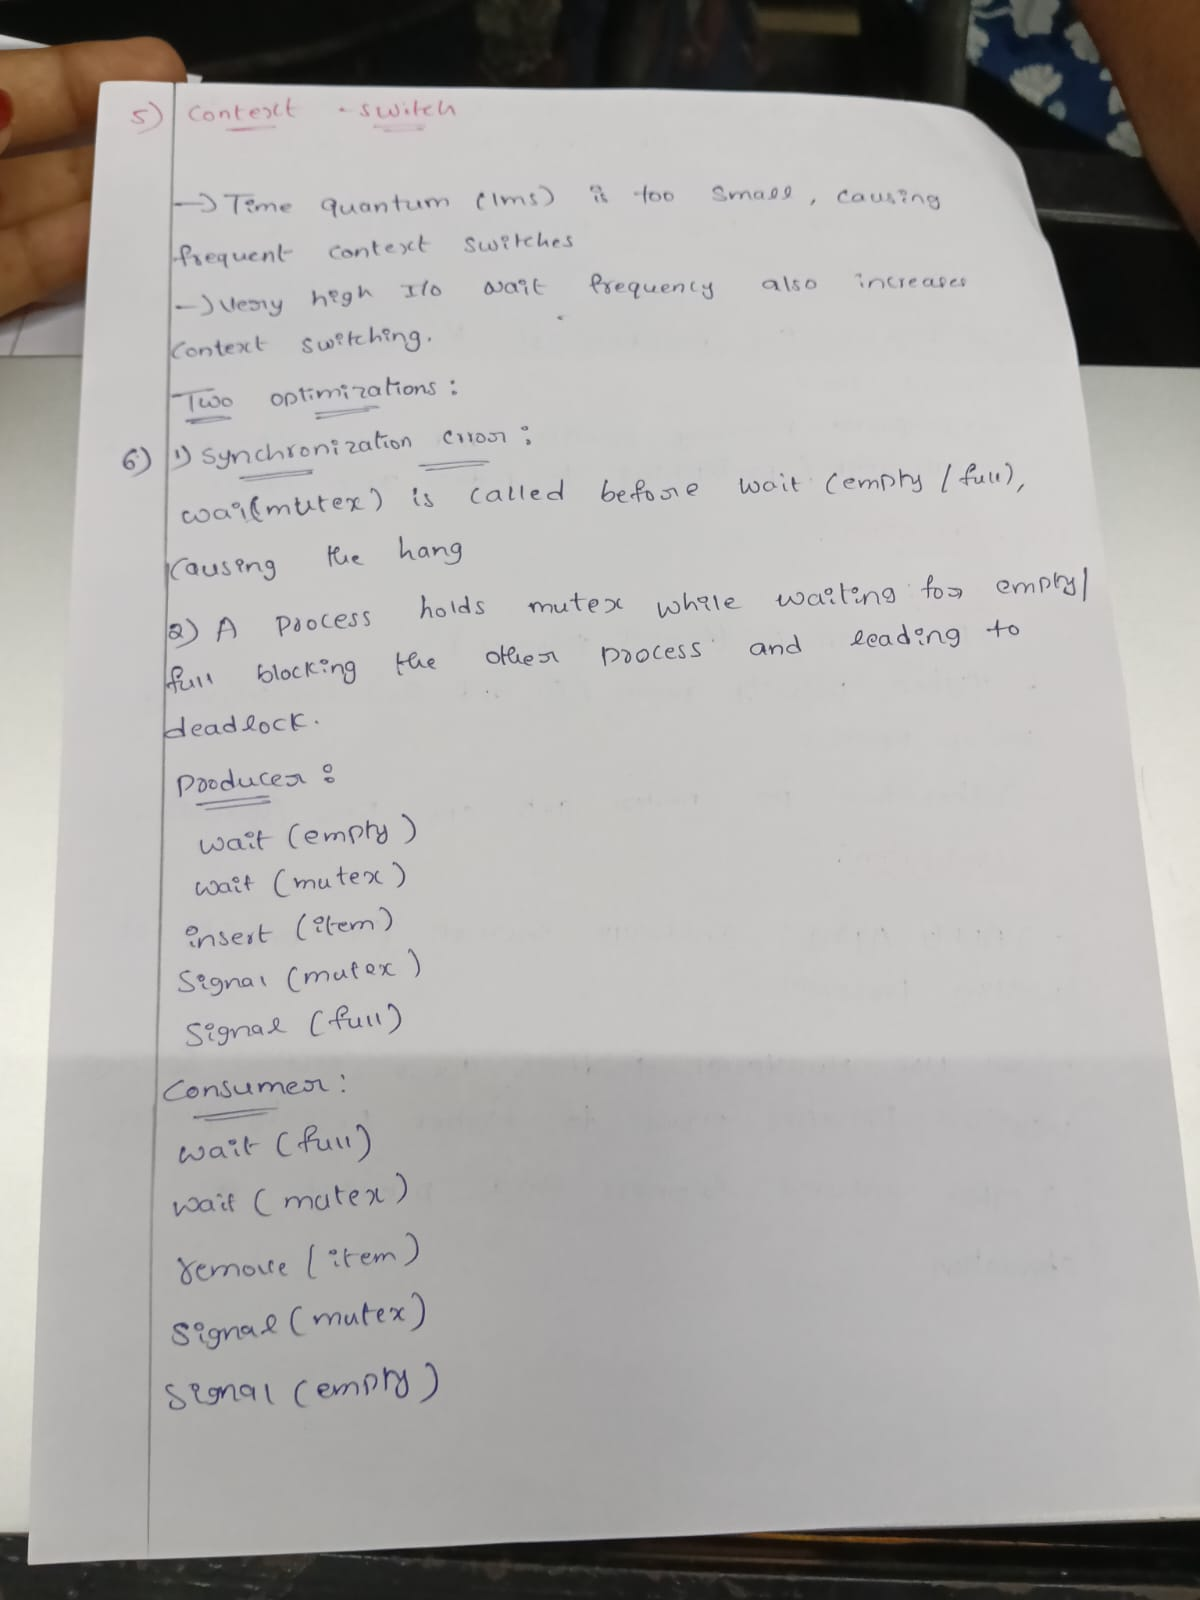 5) Context - switch
→ Time quantum (1ms) is too small, causing
frequent context switches
→ Very high I/O wait frequency also increases
context switching.
Two optimizations:
6) 1) synchronization error:
wait(mutex) is called before wait (empty / full),
causing the hang
2) A process holds mutex while waiting for empty/
full blocking the other process and leading to
deadlock.
Producer:
wait (empty)
wait (mutex)
insert (item)
Signal (mutex)
Signal (full)
Consumer:
wait (full)
wait (mutex)
remove (item)
Signal (mutex)
Signal (empty)